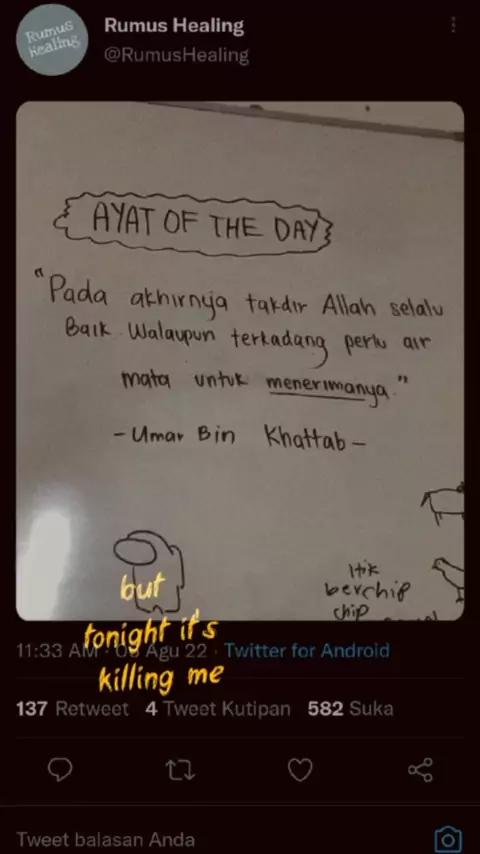 Rumus Healing
Rumus Healing
@RumusHealing
AYAT OF THE DAY
"Pada akhirnya takdir Allah selalu
Baik Walaupun terkadang perlu air
mata untuk menerimanya."
- Umar Bin Khattab -
Itik
berchip
chip
but
tonight it's
killing me
11:33 AM · Agu 22 · Twitter for Android
137 Retweet 4 Tweet Kutipan 582 Suka
Tweet balasan Anda